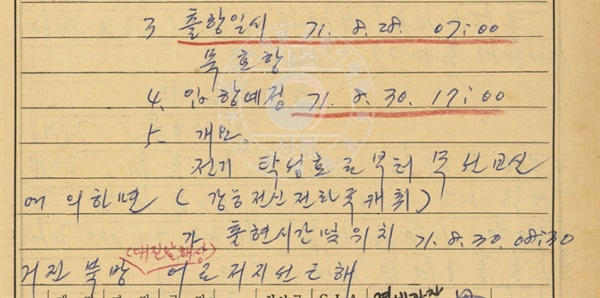 3 출항일시 71. 8. 28. 07:00
묵호항
4. 입항예정 71. 8. 30. 17:00
5. 개요
전기 탁성호로부터 무선교신
에 의하면 (강릉전신전화국 캐취)
가 출현시간 및 위치 71. 8. 30. 08:30
(대진앞해상)
거진 북방 어로저지선 근해